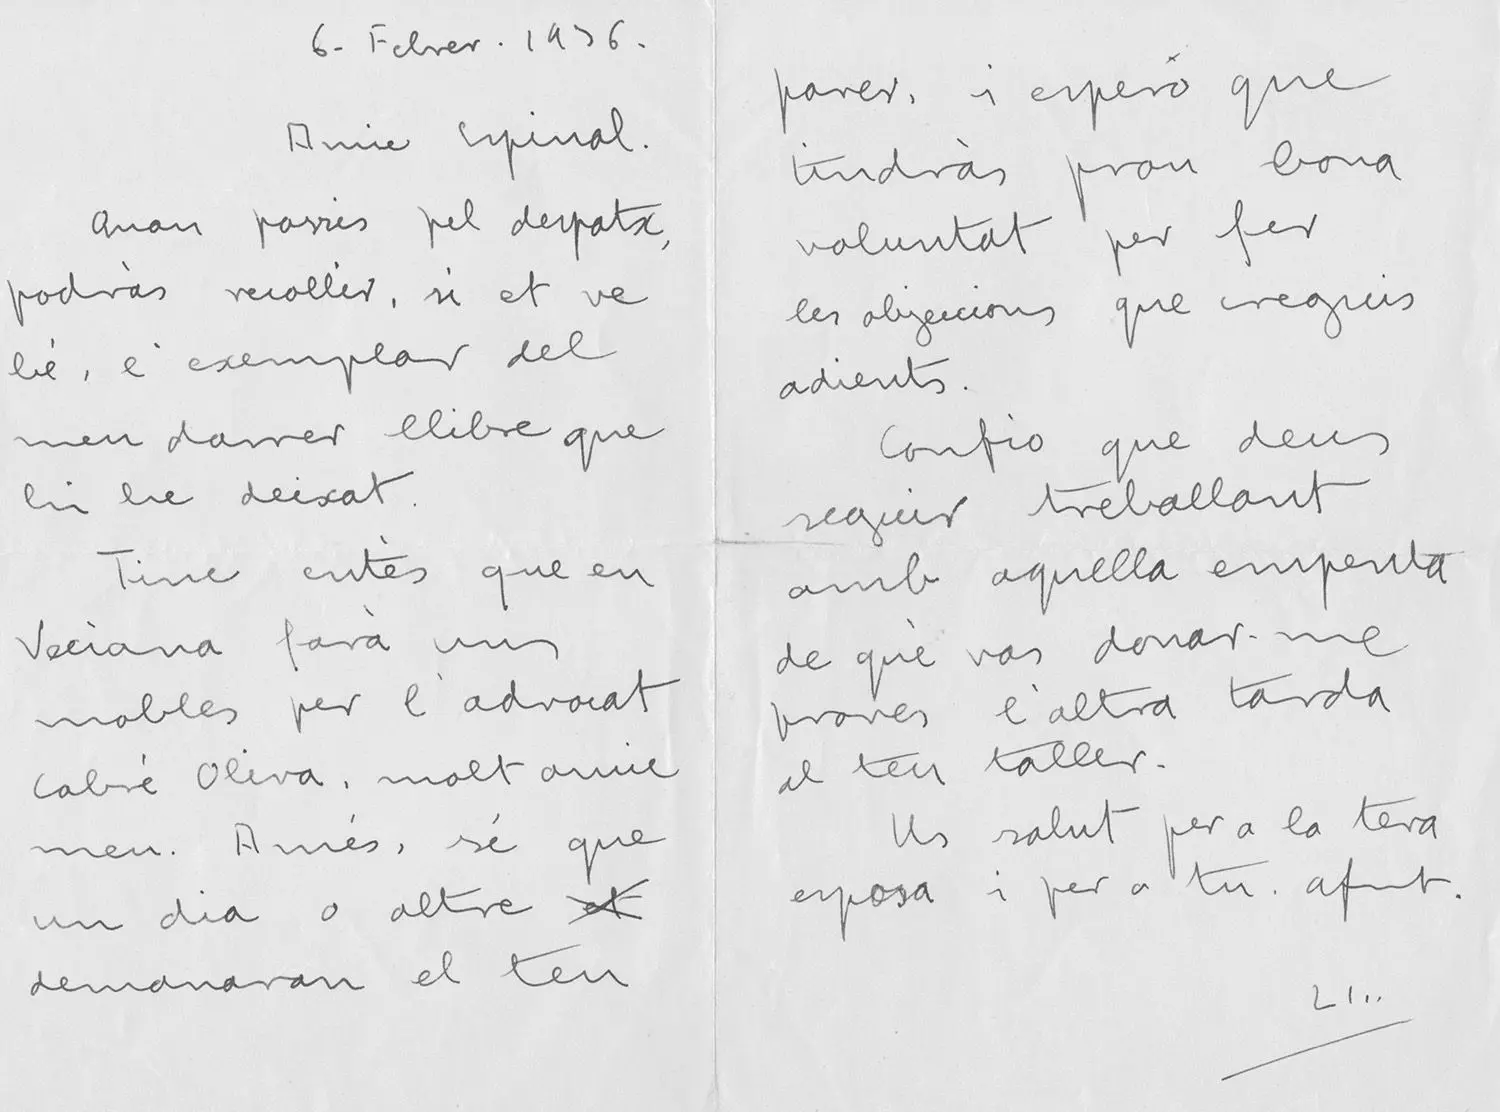 6 - Febrer. 1936.
Amic Espinal.
Quan passis pel despatx,
podràs recollir, si et ve
bé, l'exemplar del
meu darrer llibre que
hi he deixat.
Tinc entès que en
Veciana farà uns
mobles per l'advocat
Cabré Oliva, molt amic
meu. Amés, sé que
un dia o altre et
demanaran el teu
parer, i esperò que
tindràs prou bona
voluntat per fer
les objeccions que creguis
adients.
Confio que deus
seguir treballant
amb aquella empenta
de què vas donar-me
proves l'altra tarda
al teu taller.
Us salut per a la teva
esposa i per a tu. afmt.
Ll..